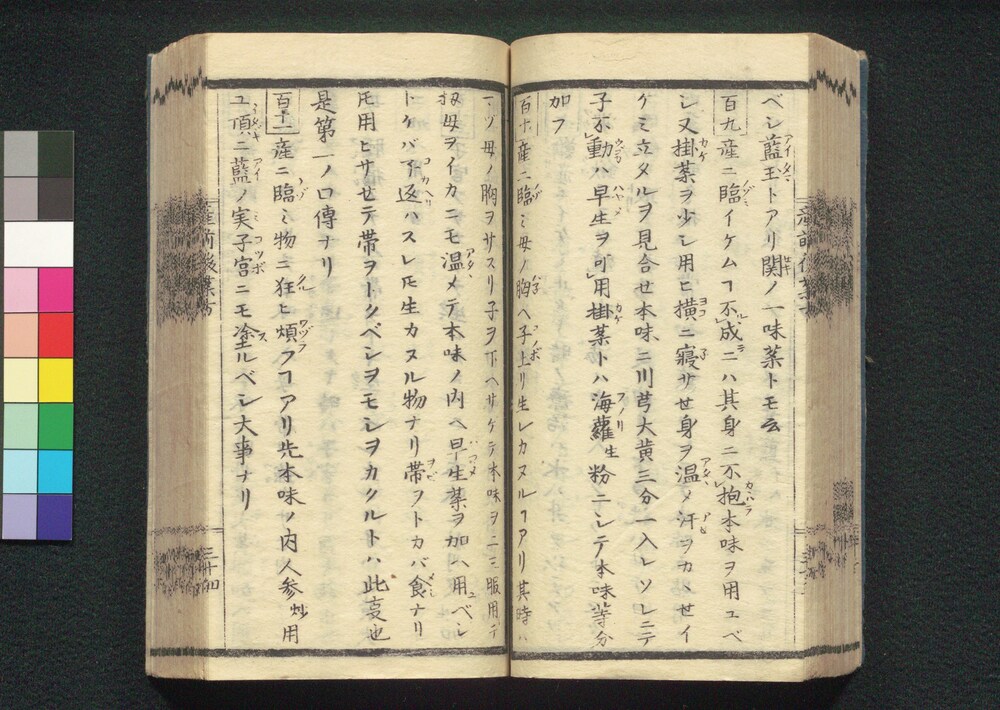 ベシ藍玉トアリ関ノ一味薬トモ云
百九産ニ臨イケムヿ不成ニハ其身ニ不抱本味ヲ用ユベ
シ又掛薬ヲ少シ用ヒ横ニ寝サセ身ヲ温メ汗ヲカヽセイ
ケミ立タルヲ見合せ本味ニ川芎大黄三分一入レツレニテ
子不動ハ早生ヲ可用掛薬トハ海蘿生粉ニシテ本味等分
加フ
百十産ニ臨ミ母ノ胸ヘ子上リ生レカヌルヿアリ其時ハ
マヅ母ノ胸ヲサスリ子ヲ下ヘサケテ本味ヲ二三服用テ
扨母ヲイカニモ温メテ本味ノ内ヘ早生薬ヲ加ハ用ユベシ
トケバ不返ハスレ𪜈生カヌル物ナリ帯ヲトカバ食ナリ
𪜈用ヒサせテ帯ヲトクベシヲモシヲカクルトハ此夏也
是第一ノ口傳ナリ
百十一産ニ臨ミ物ニ狂ヒ煩フヿアリ先本味ノ内人参炒用
ユ頂ニ藍ノ実子宮ニモ塗ルベシ大事ナリ
三十四